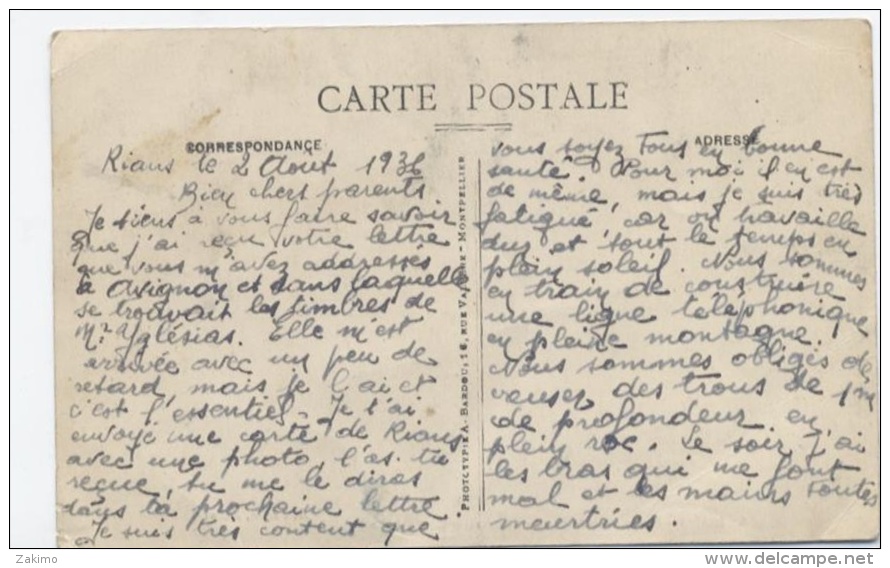 CARTE POSTALE
CORRESPONDANCE
Rians le 2 Aout 1936
Bien chers parents
Je viens à vous faire savoir
que j'ai reçu votre lettre
que vous m'avez addressés
à Avignon et dans laquelle
se trouvait les timbres de
Mr Yglésias. Elle m'est
arrivée avec un peu de
retard, mais je l'ai et
c'est l'essentiel. Je t'ai
envoyé une carte de Rians
avec une photo, l'as tu
reçue, tu me le diras
dans ta prochaine lettre
Je suis très content que
PHOTOTYPIE A. BARDOU, 16, RUE - MONTPELLIER
ADRESSE
vous soyez tous en bonne
santé. Pour moi il en est
de même, mais je suis très
fatigué, car on travaille
dur et tout le temps en
plein soleil. Nous sommes
en train de construire
une ligne téléphonique
en pleine montagne.
Nous sommes obligés de
creuser des trous de 1m
de profondeur en
plein roc. Le soir j'ai
les bras qui me font
mal et les mains toutes
meurtries.
Zakimo
http://www.delcampe.net